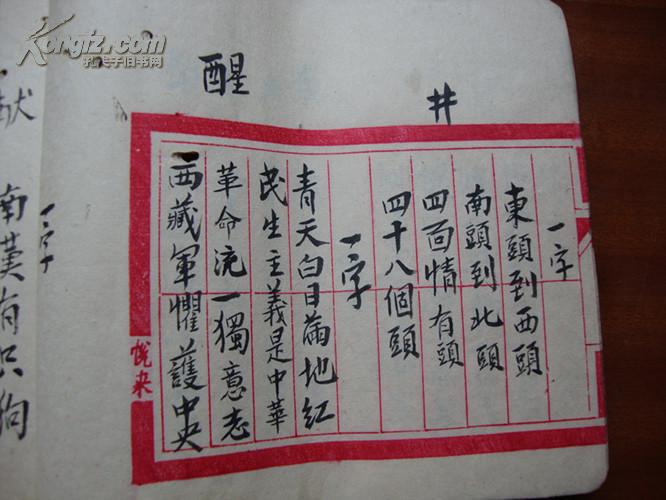 Kongfz.com
孔夫子旧书网
井
一字
東頭到西頭
南頭到北頭
四面情有頭
四十八個頭
醒
一字
青天白日滿地紅
民生主義是中華
革命流一獨意志
西藏軍懼護中央
悅来
献
一字
南漢有只狗